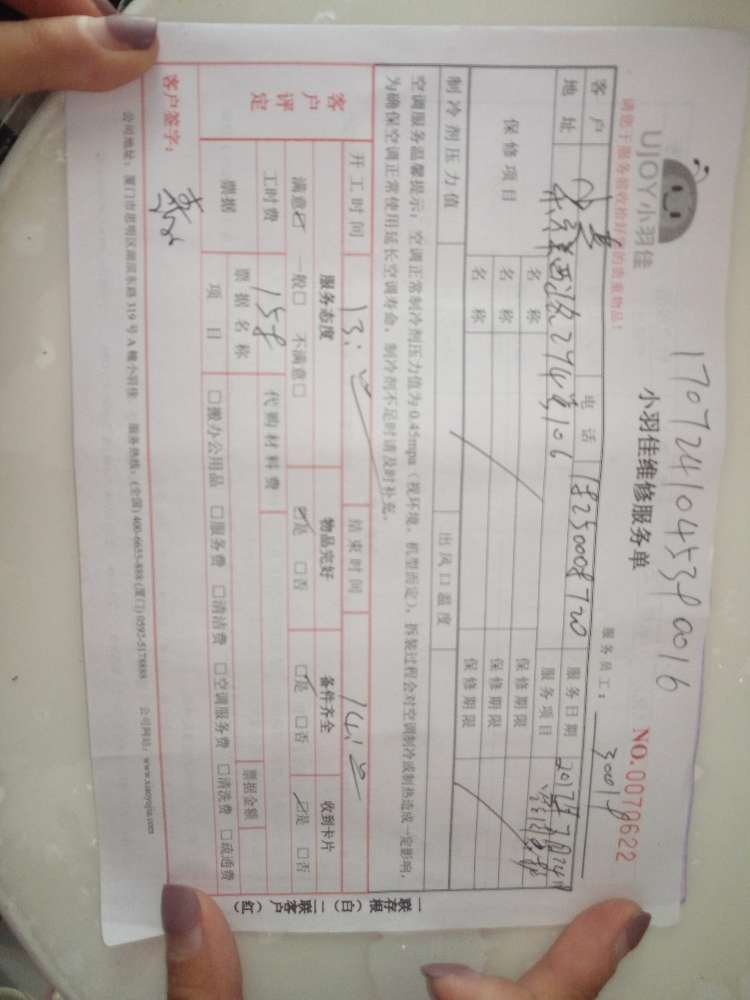 UJOY小羽佳
1707241045380016
小羽佳维修服务单
NO.0070622
请您于服务前收拾好您的贵重物品！
服务员工：
客户 电话 18250008720 服务日期 2017年7月24日
地址 274号106 服务项目
保修项目 名称 保修期限
名称 保修期限
名称 保修期限
制冷剂压力值 出风口温度
空调服务温馨提示：空调正常制冷剂压力值为0.45mpa（视环境、机型而定），拆装过程会对空调制冷或制热造成一定影响，
为确保空调正常使用延长空调寿命，制冷剂不足时请及时补充。
开工时间 13: 结束时间 14:
客户评定 服务态度 物品完好 备件齐全 收到卡片
满意☑ 一般□ 不满意□ ☑是 □否 ☑是 □否 ☑是 □否
工时费 158 代购材料费
票据 票据名称 票据金额
项目 □搬办公用品 □服务费 □清洁费 □空调服务费 □清洗费 □疏通费
客户签字：
公司地址：厦门市思明区湖滨东路319号A幢小羽佳 服务热线：(全国)400-6655-888 (厦门)0592-5178888 公司网站：www.xiaoyujia.com
一联存根（白）二联客户（红）